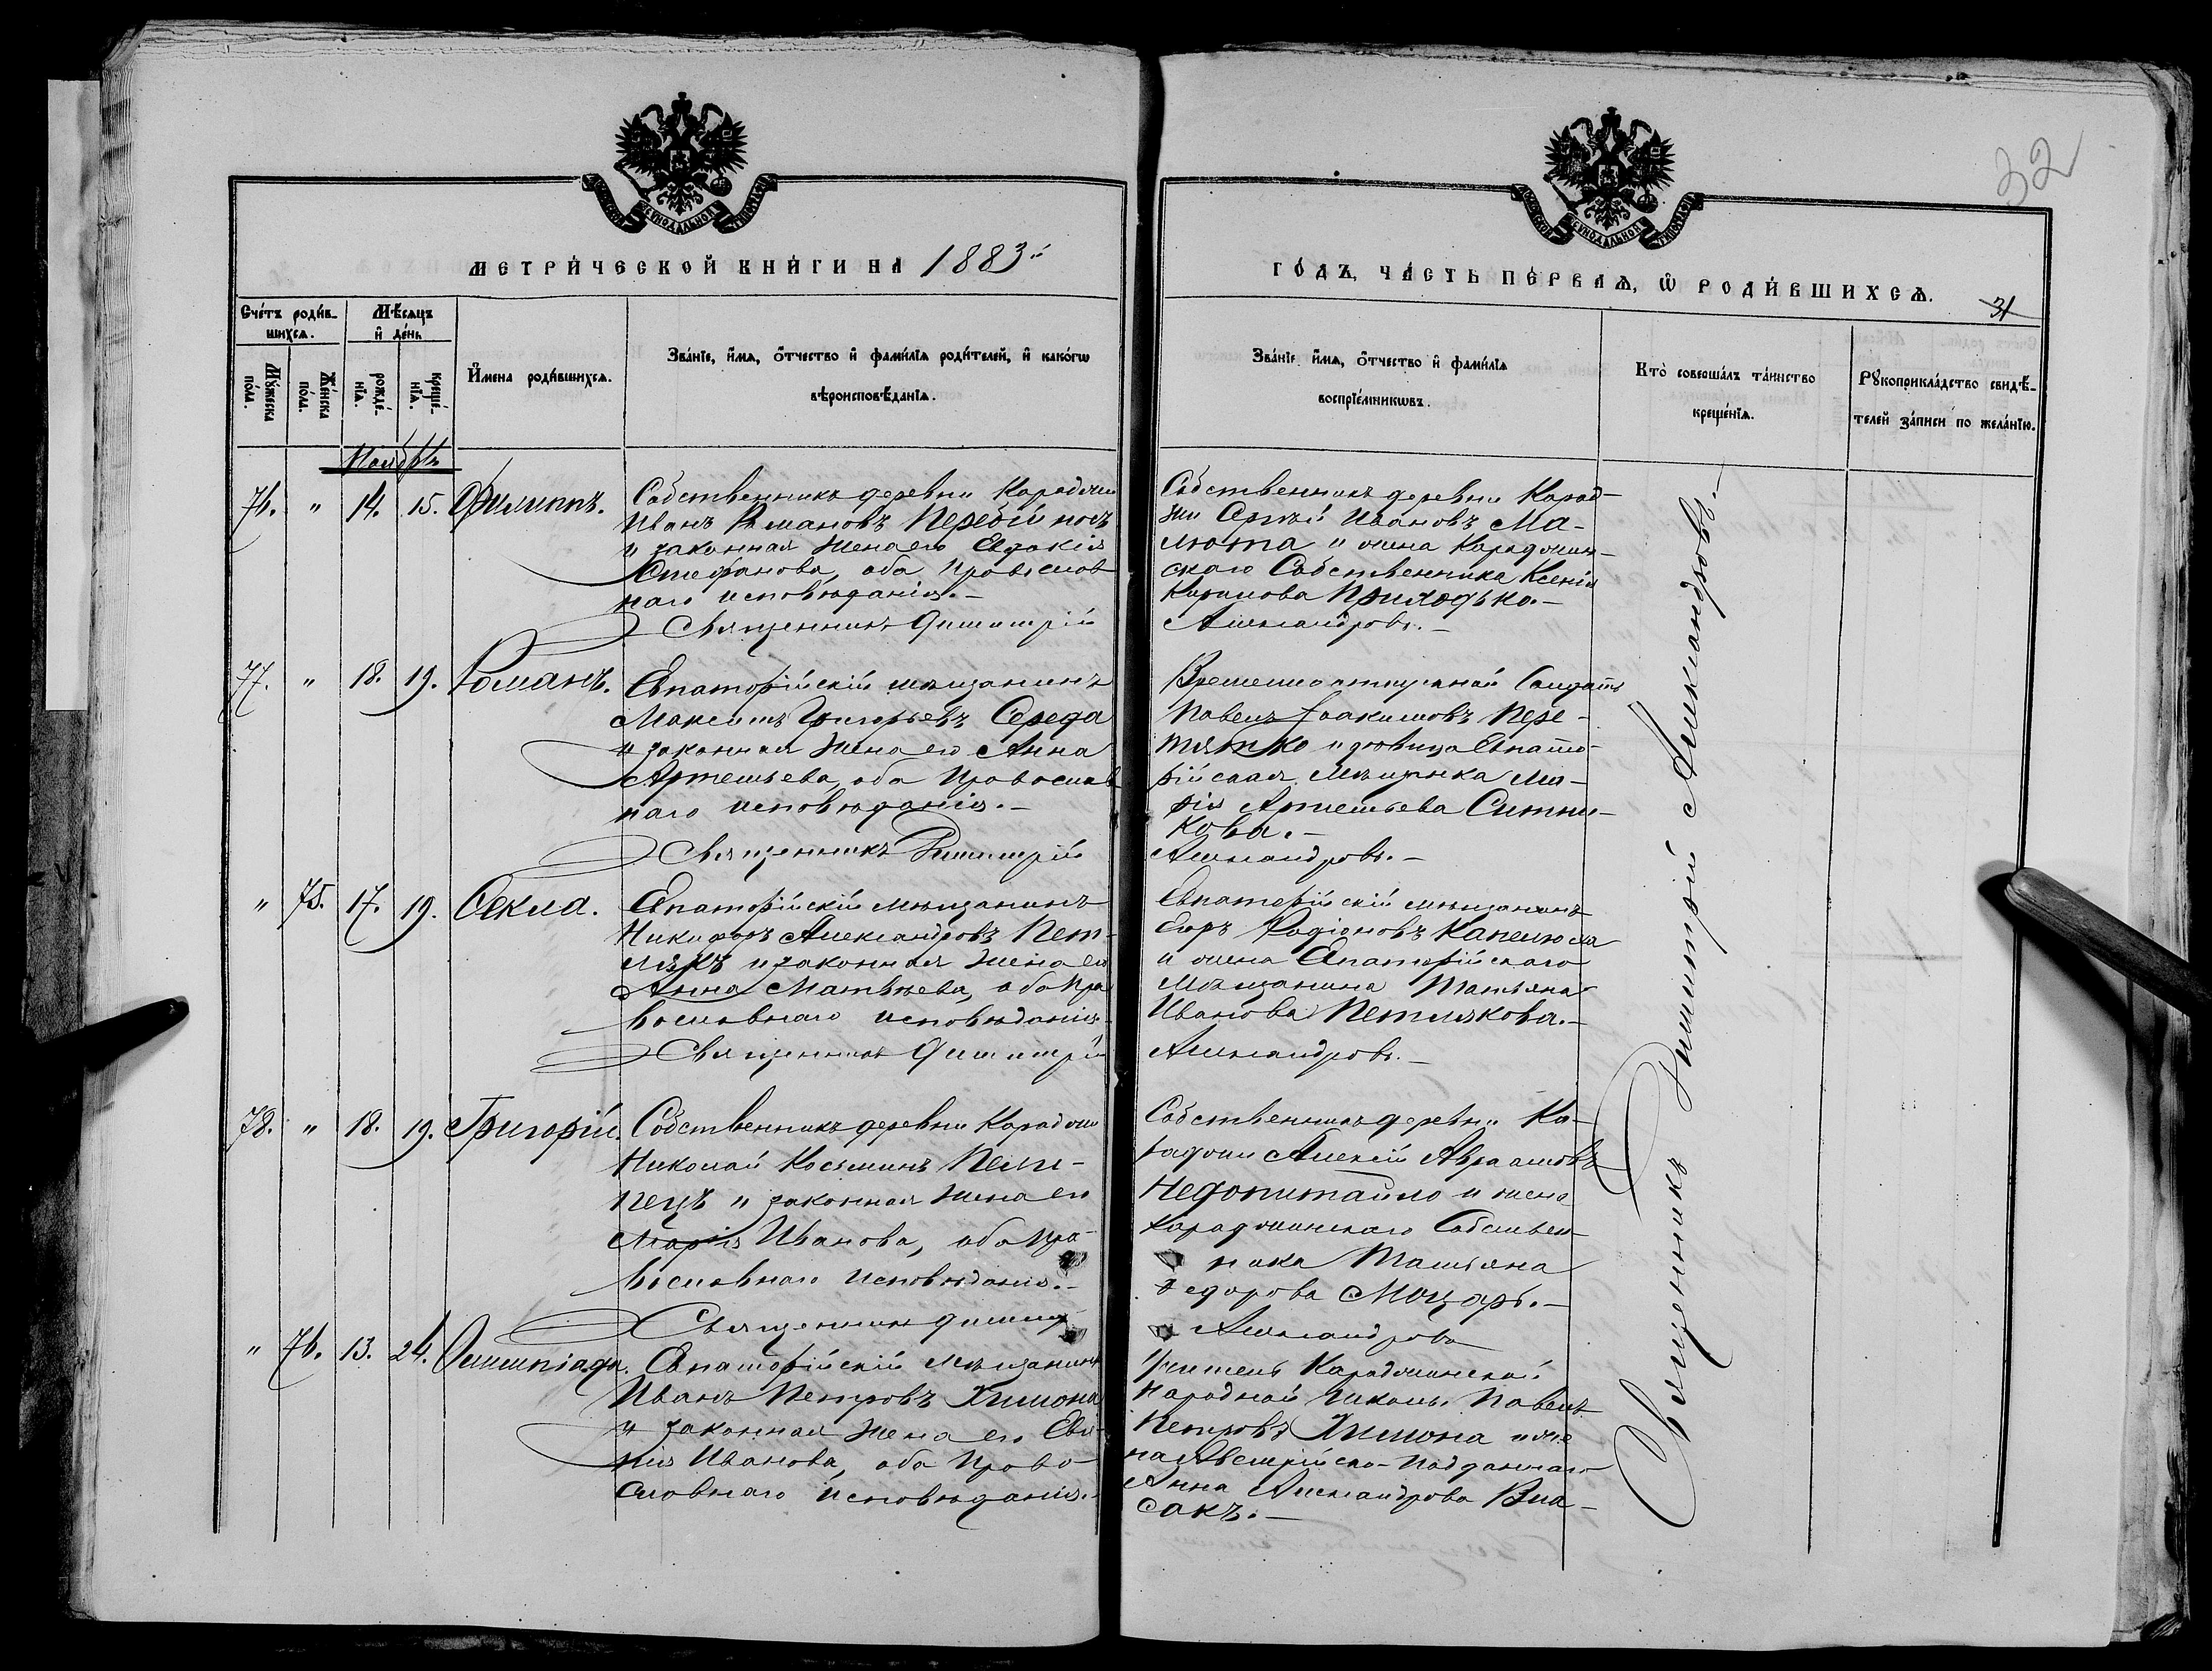 32
МЕТРИ́ЧЕСКОЙ КНИ́ГИ НА 1883й
ГО́ДЪ, ЧА́СТЬ ПЕ́РВАЯ, Ѡ РОДИ́ВШИХСЯ.
31
Сче́тъ роди́в-
шихся.
Мѣ́сяцъ
и҆ де́нь
Му́жеска
по́ла.
Же́нска
по́ла.
рожде́-
нїя.
креще́-
нїя.
И҆мена роди́вшихся.
Зва́нїе, и҆́мя, ѻ҆́тчество и҆ фами́лїя роди́телей, и҆ како́гѡ
вѣроисповѣ́данїя.
Зва́нїе и҆́мя, ѻ҆́тчество и҆ фами́лїя
воспрїе́мникѡвъ.
Кто̀ соверша́лъ та́инство
креще́нїя.
Рꙋкоприкла́дство свидѣ́-
телей за́писи по жела́нїю.
Ноябрь
76. " 14. 15. Филиппъ.
Собственникъ деревни Караджи
Иванъ Романовъ Перебійносъ
и законная жена его Евдокія
Стефанова, оба православ
наго исповѣданія.—
Священникъ Димитрій
Собственникъ деревни Карад-
жи Сергѣй Ивановъ Ма-
люта и жена Караджин-
скаго Собственника Ксенія
Приходько.—
Александровъ.—
77. " 18. 19. Романъ.
Евпаторійскій мѣщанинъ
Максимъ Григорьевъ Середа
и законная жена его Анна
Артемьева, оба православ
наго исповѣданія.—
Священникъ Димитрій
Временноотпускной Солдатъ
Павелъ Іоакимовъ Пере-
тятко и дѣвица Евпато-
рійская Мѣщанка Ма-
рія Артемьева Ситни-
кова.—
Александровъ.—
" 75. 17. 19. Ѳекла.
Евпаторійскій мѣщанинъ
Никифоръ Александровъ Пет-
лякъ и законная жена его
Анна Матвѣева, оба пра
вославнаго исповѣданія.
Священникъ Димитрій
Евпаторійскій мѣщанинъ
Егоръ Родіоновъ Капелюха
и жена Евпаторійскаго
Мѣщанина Татьяна
Иванова Петлякова.—
Александровъ.—
78. " 18. 19. Григорій.
Собственникъ деревни Караджи
Николай Косьминъ
и законная жена его
Марія Иванова, оба пра-
вославнаго исповѣданія.—
Священникъ Димит
Собственникъ деревни Ка-
раджи Алексій Авраамовъ
Недопитайло и жена
Караджинскаго Собствен-
ника Татьяна
Ѳедорова Моцарь.—
Александровъ
" 76. 13. 24. Олимпіада.
Евпаторійскій Мѣщанинъ
Иванъ Петровъ Химона
и законная жена его Ев
Иванова, оба право-
славнаго исповѣданія.
Учитель Караджинской
народной школы Павелъ
Петровъ Химона и же
на Австрійско-подданнаго
Анна Александрова Вла-
сакъ.—
Священникъ Димитрій Александровъ.—